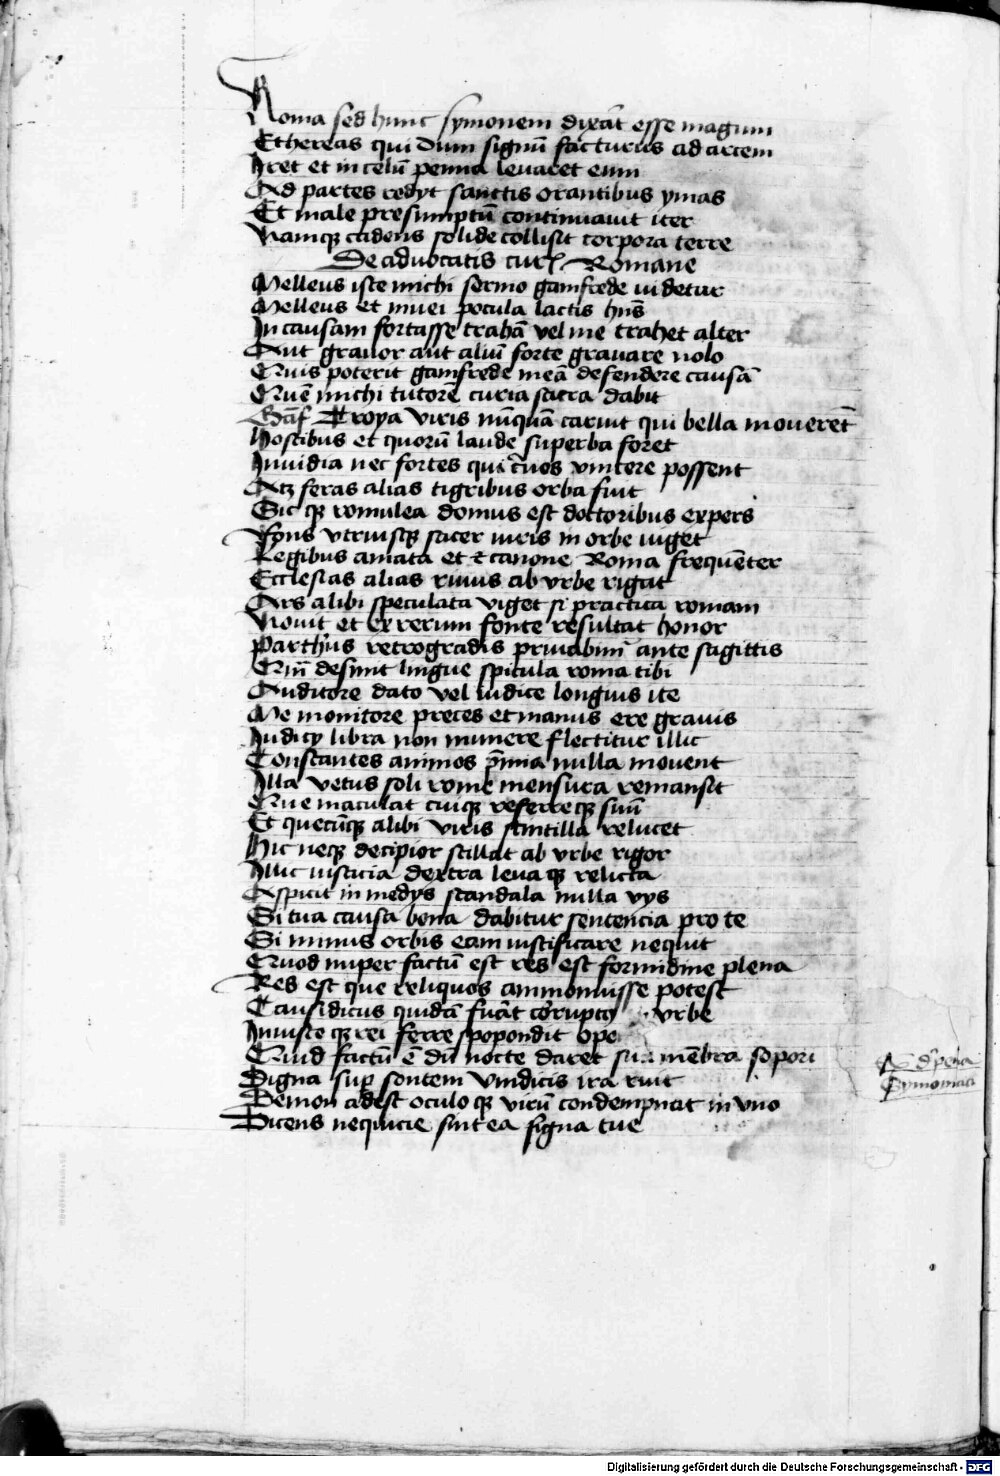 Roma sed hunc symonem dixāt esse magum
Ethereas qui dum signū facturus ad arcem
Iret et in celū penna levaret eum
Ad partes redyt sanctis orantibus ymas
Et male presumptū continuavit iter
Namqꝫ cadens solide collisit corpora terre
De advocatis cur Romane
Melleus iste michi sermo gamfrede videtur
Melleus et nivei pocula lactis hn̄s
In causam fortasse trahā vel me trahet alter
Aut gravor aut aliū forte gravare volo
Quis poterit gamfrede meā defendere causā
Quē michi tutorē curia sacra dabit
Gāf Troya viris nūquā caruit qui bella moverēt
Hostibus et quorū laude superba foret
Invidia nec fortes qui vincere possent
Atꝫ feras alias tigribus orba fuit
Sic qꝫ romulea domus est doctoribus expers
Fons utriusqꝫ sacer iuris in orbe viget
Legibus amata et canone Roma frequēter
Ecclesias alias rivus ab urbe rigat
Ars alibi speculata viget si practica romam
Novit et ex rerum fonte resultat honor
Parthus retrogradis privabim̄ ante sagittis
Quī desint lingue spicula roma tibi
Auditore dato vel iudice longius ite
Me monitore preces et manus ere gravis
Iudicy libra non munere flectitur illic
Constantes animos p̄mia nulla movent
Illa vetus soli rome mensura remansit
Que maculat cuiqꝫ referre qꝫ suū
Et quecūqꝫ alibi viris scintilla relucet
Hic neqꝫ decipior stillat ab urbe rigor
Illic iusticia dextra leva qꝫ relicta
Aspicit in medys scandala nulla vys
Si tua causa bona dabitur sentencia pro te
Si minus orbis eam iustificare nequit
Quod nuper factū est res est formidine plena
Res est que reliquos ammonuisse potest
Causidicus quidā fuāt corrupto urbe
Iniuste qꝫ rei ferre spopondit ope
Quid factū ē dū nocte daret sua mēbra sopori
Digna sup sontem vindicis ira ruit
Demon adest oculo qꝫ virū condempnat in uno
Dicens nequicie sint ea signa tue
Symoniaci